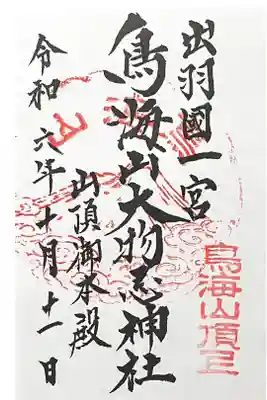 出羽國一宮
鳥海山大物忌神社
山頂御本殿
令和六年十月十一日
鳥海山頂上